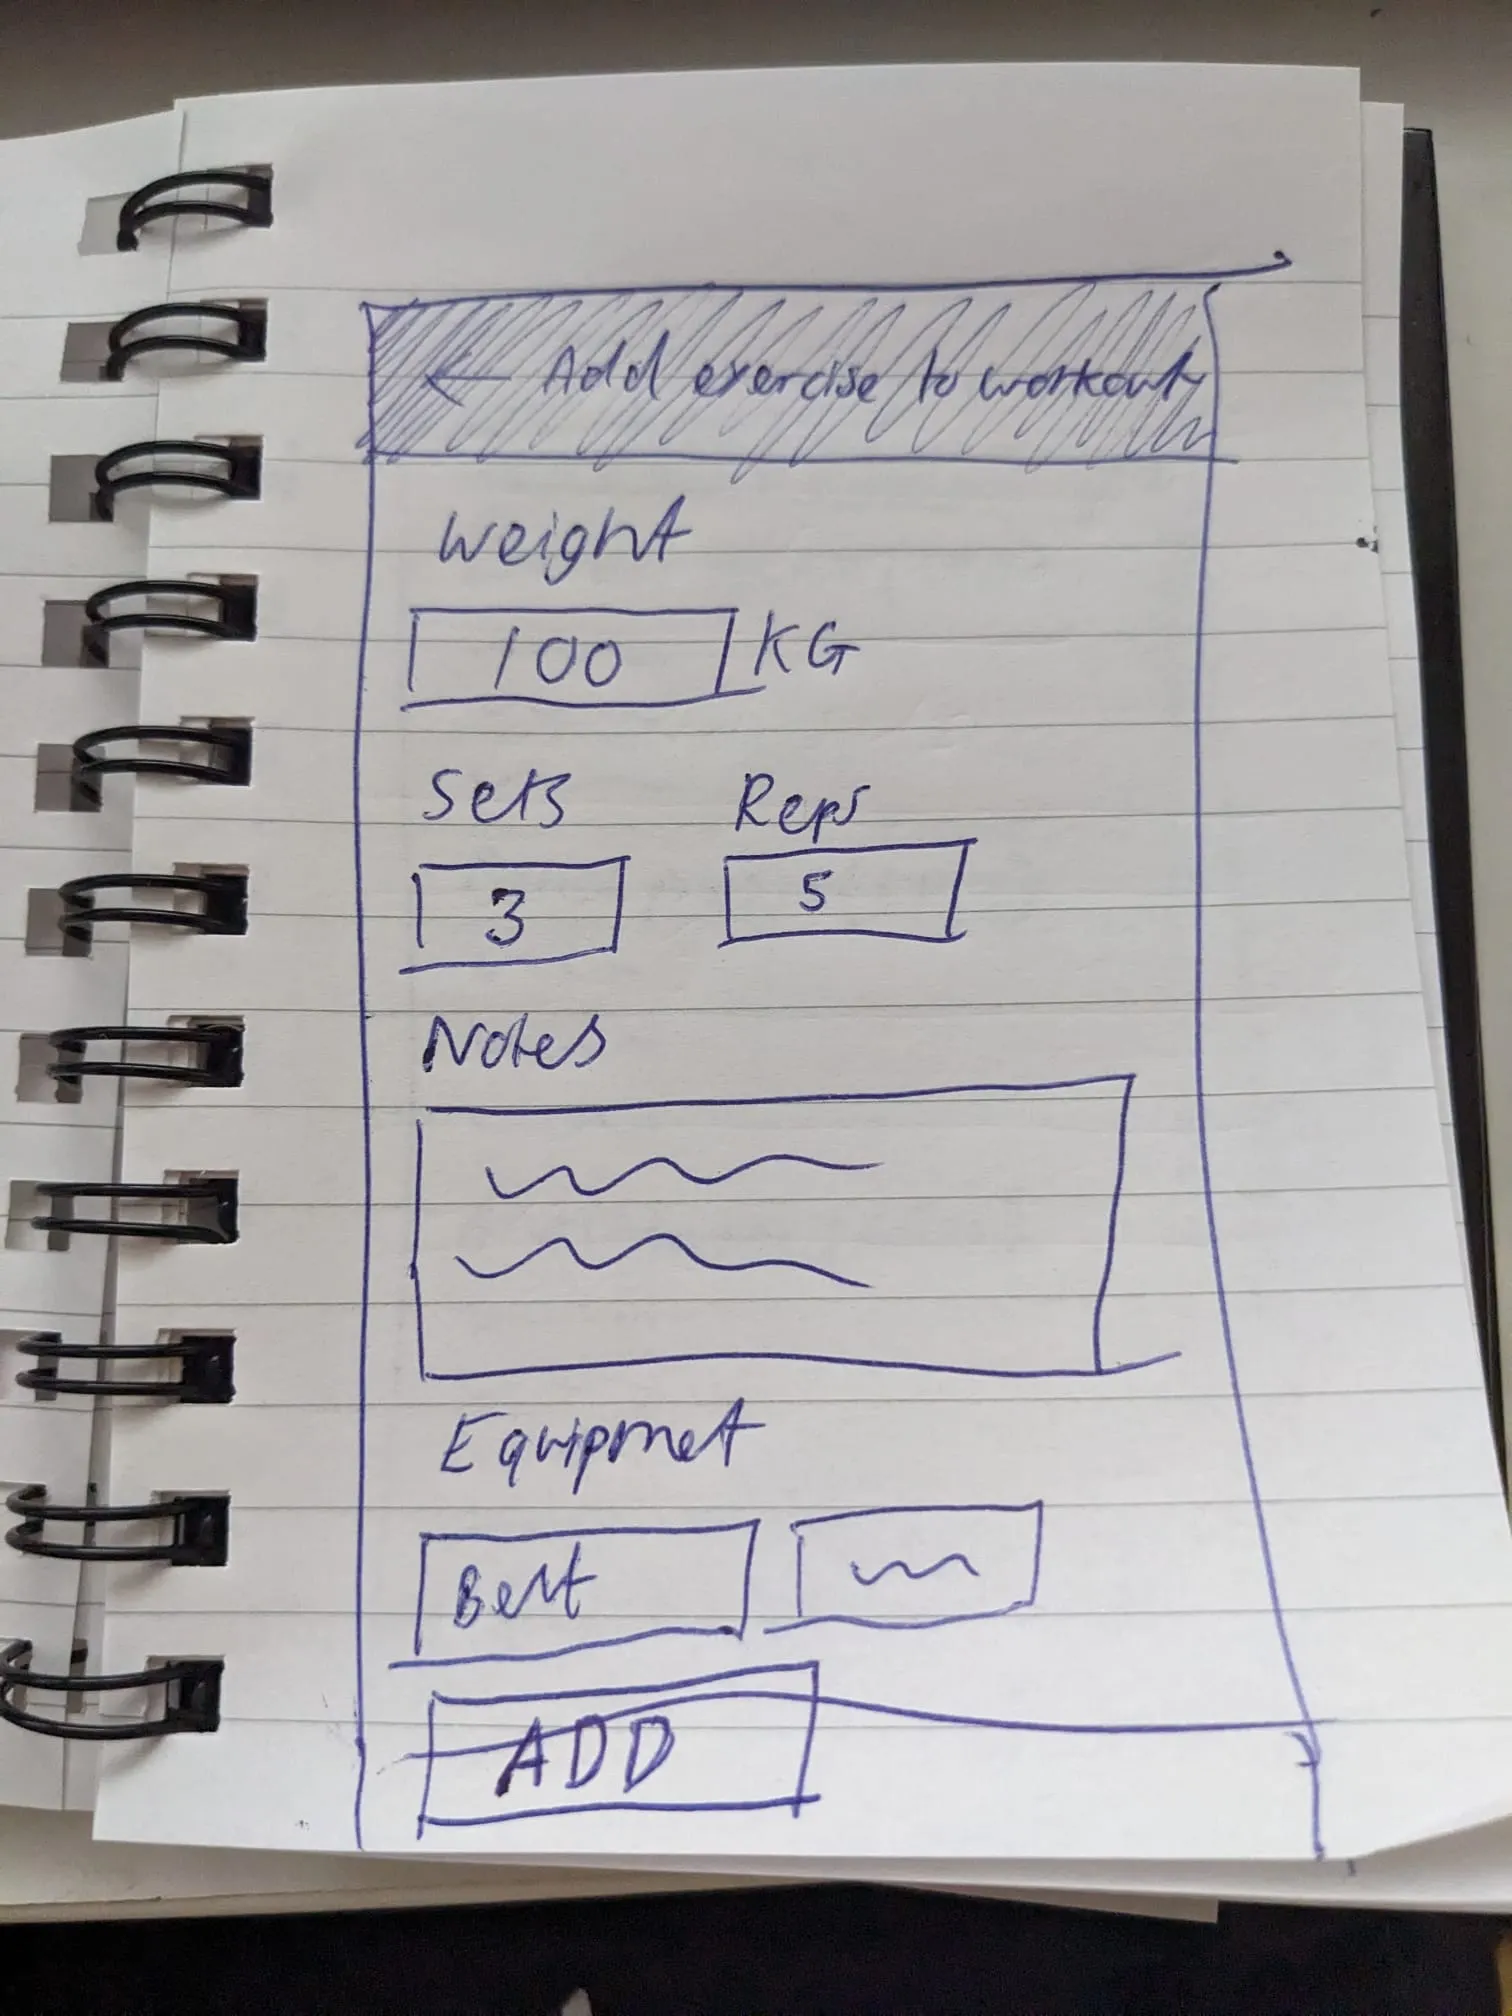 ← Add exercise to workout
Weight
100 KG
Sets Reps
3 5
Notes
Equipmet
Belt
ADD